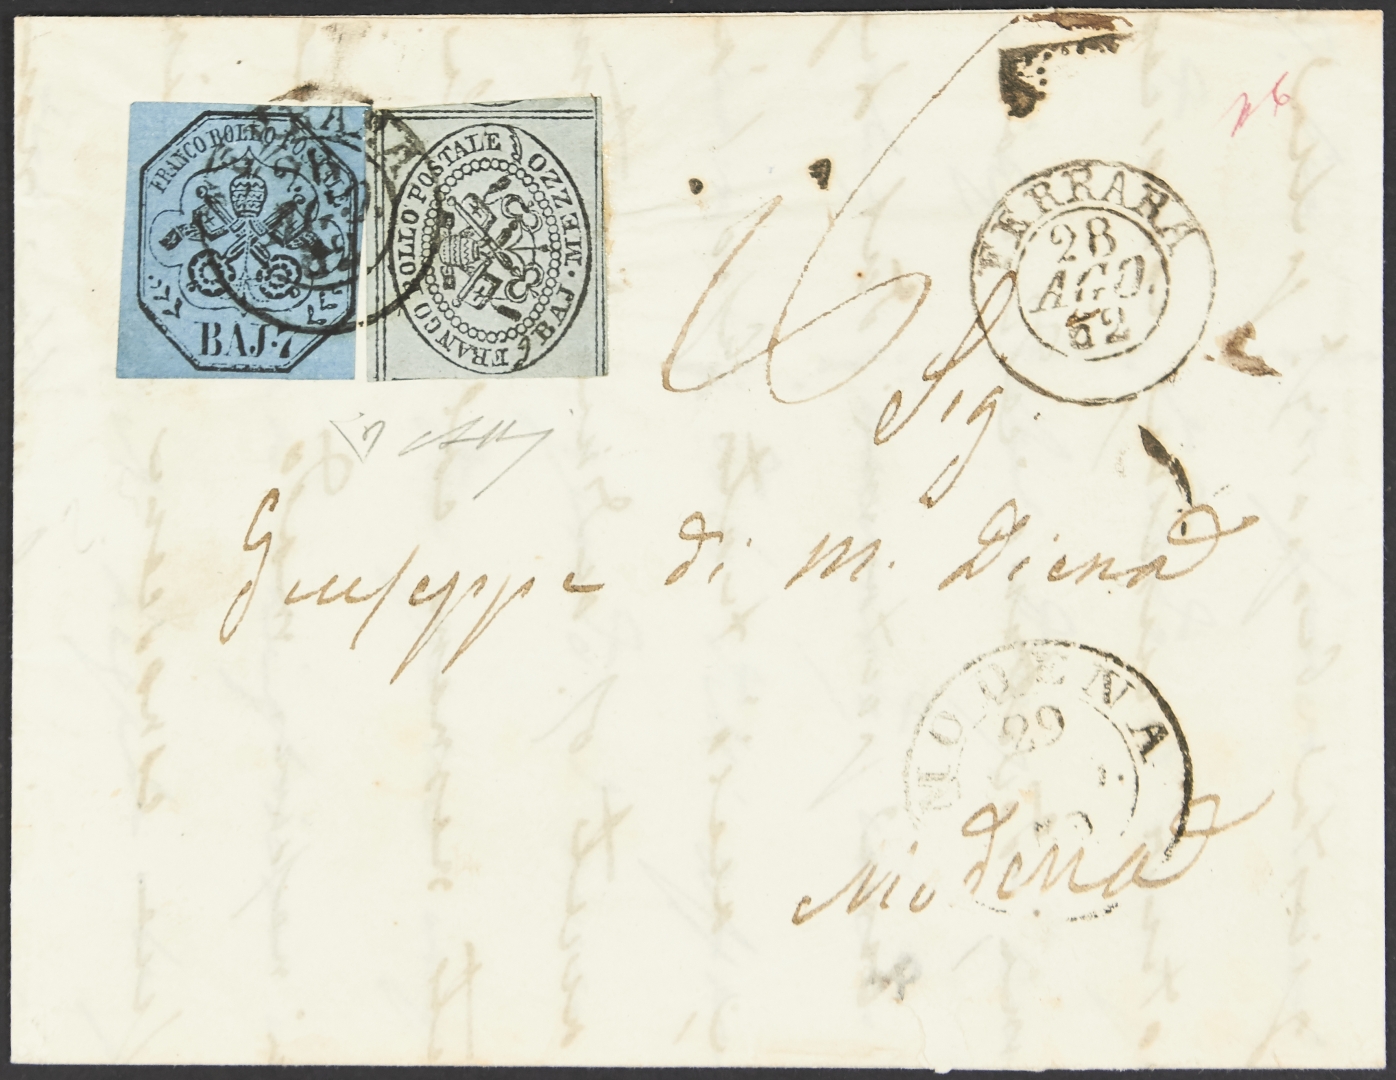 FRANCO BOLLO POSTALE
BAJ. 7
FRANCO BOLLO POSTALE
MEZZO BAJ
FERRARA
28
AGO.
52
26
Sig.
Giuseppe di M. Diena
MODENA
29
Modena